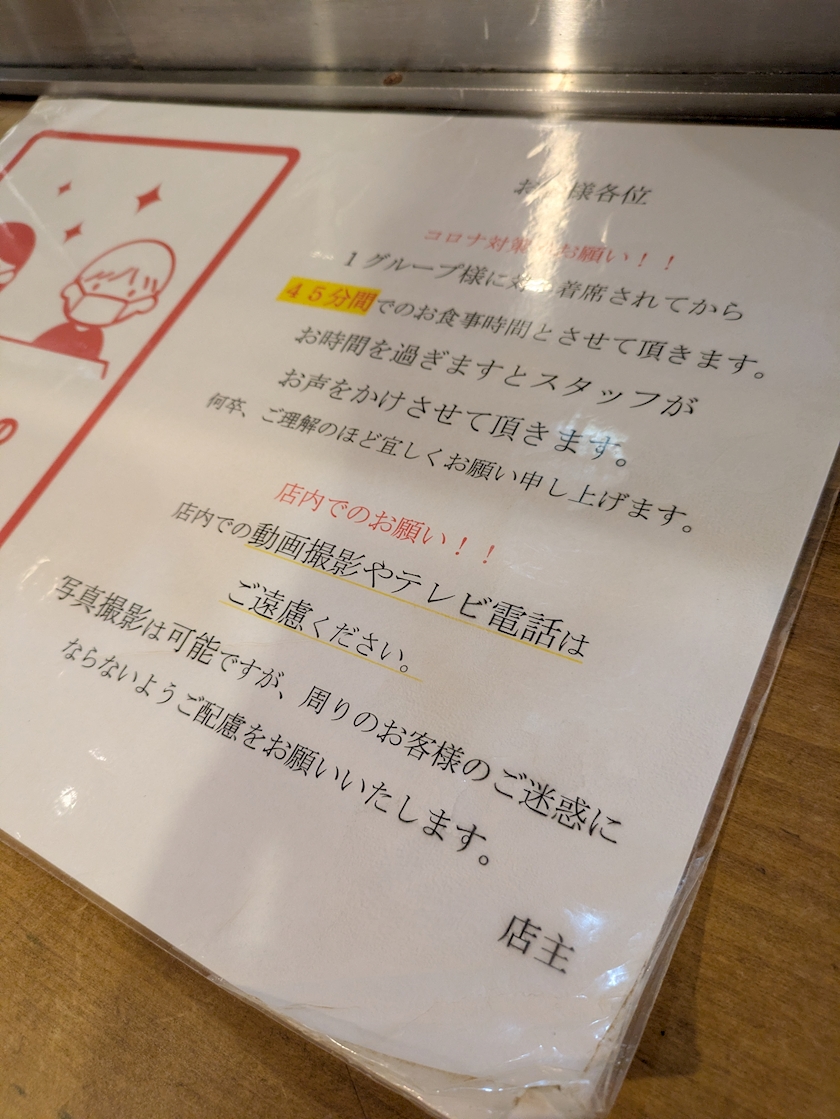 お客様各位
コロナ対策のお願い！！
１グループ様に対し着席されてから
４５分間でのお食事時間とさせて頂きます。
お時間を過ぎますとスタッフが
お声をかけさせて頂きます。
何卒、ご理解のほど宜しくお願い申し上げます。
店内でのお願い！！
店内での動画撮影やテレビ電話は
ご遠慮ください。
写真撮影は可能ですが、周りのお客様のご迷惑に
ならないようご配慮をお願いいたします。
店主